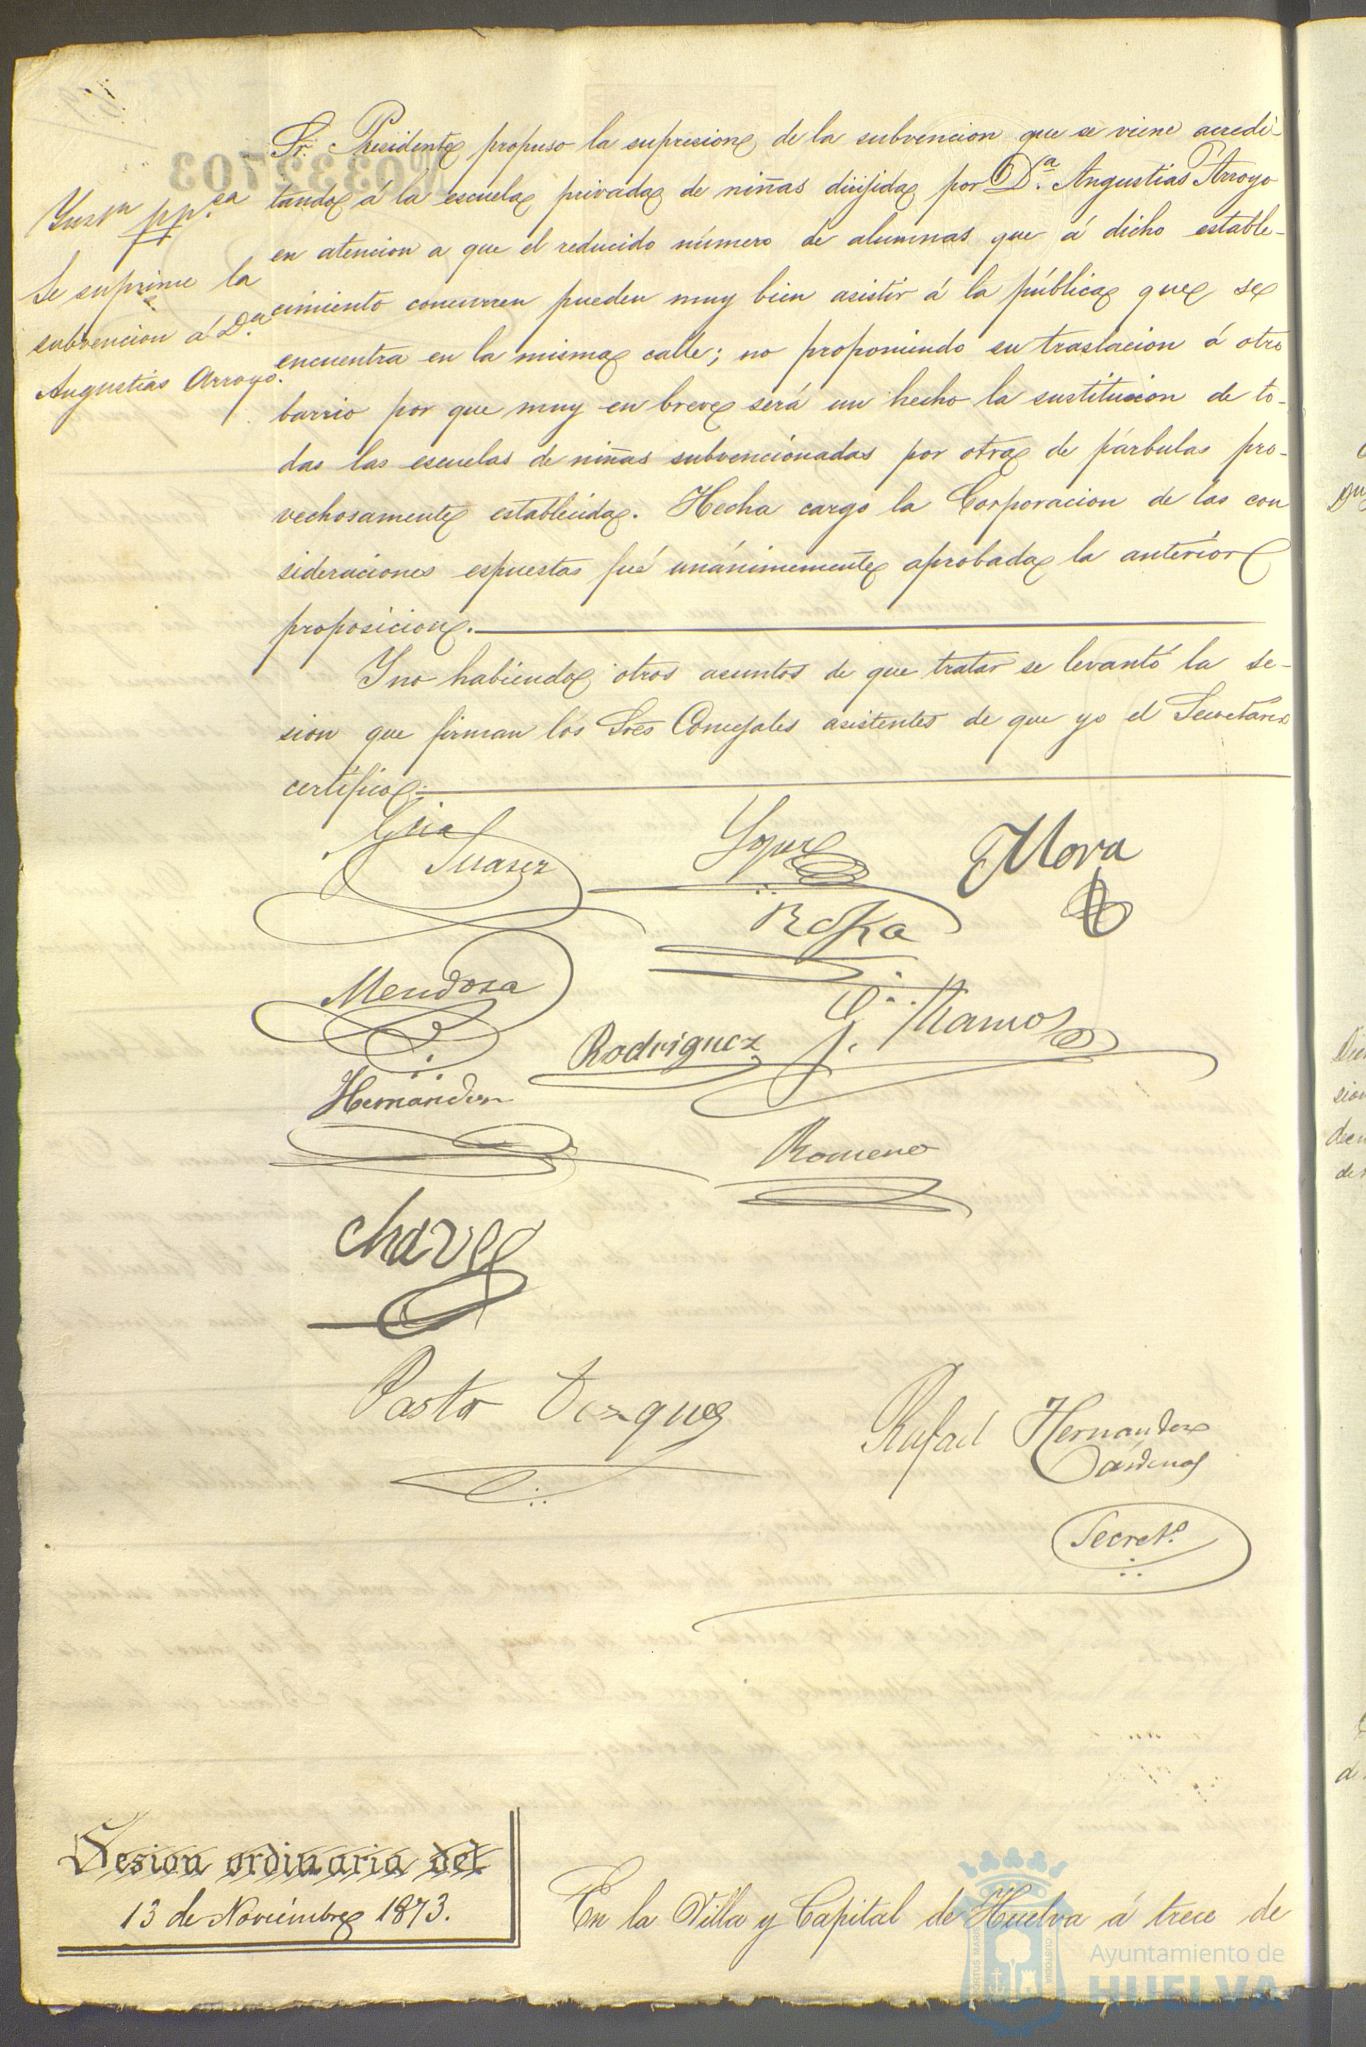 Sr. Presidente propuso la supresion de la subvencion que se viene acredi-
tando á la escuela privada de niñas dirijida por D.ª Angustias Arroyo
en atencion a que el reducido número de alumnas que á dicho estable-
cimiento concurren pueden muy bien asistir á la pública que se
encuentra en la misma calle; no proponiendo su traslacion á otro
barrio por que muy en breve será un hecho la sustitucion de to-
das las escuelas de niñas subvencionadas por otra de párbulas pro-
vechosamente establecida. Hecha cargo la Corporacion de las con
sideraciones espuestas fué unánimemente aprobada la anterior
proposicion.
Y no habiendo otros asuntos de que tratar se levantó la se-
sion que firman los Sres Concejales asistentes de que yo el Secretario
certifico.
ppca
Se suprime la
subvencion á D.ª
Angustias Arroyo.
0332703
Suarez
Mora
Mendoza
Rodriguez
G. Ramos
Hernandez
Romero
Chavez
Pastor Vazquez
Rafael Hernandez
Cárdenas
Secret.º
Sesion ordinaria del
13 de Noviembre 1873.
En la Villa y Capital de Huelva á trece de
Ayuntamiento de
HUELVA